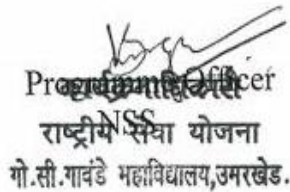 Programme Officer
कार्यक्रमाधिकारी
NSS
राष्ट्रीय सेवा योजना
गो.सी.गावंडे महाविद्यालय,उमरखेड.